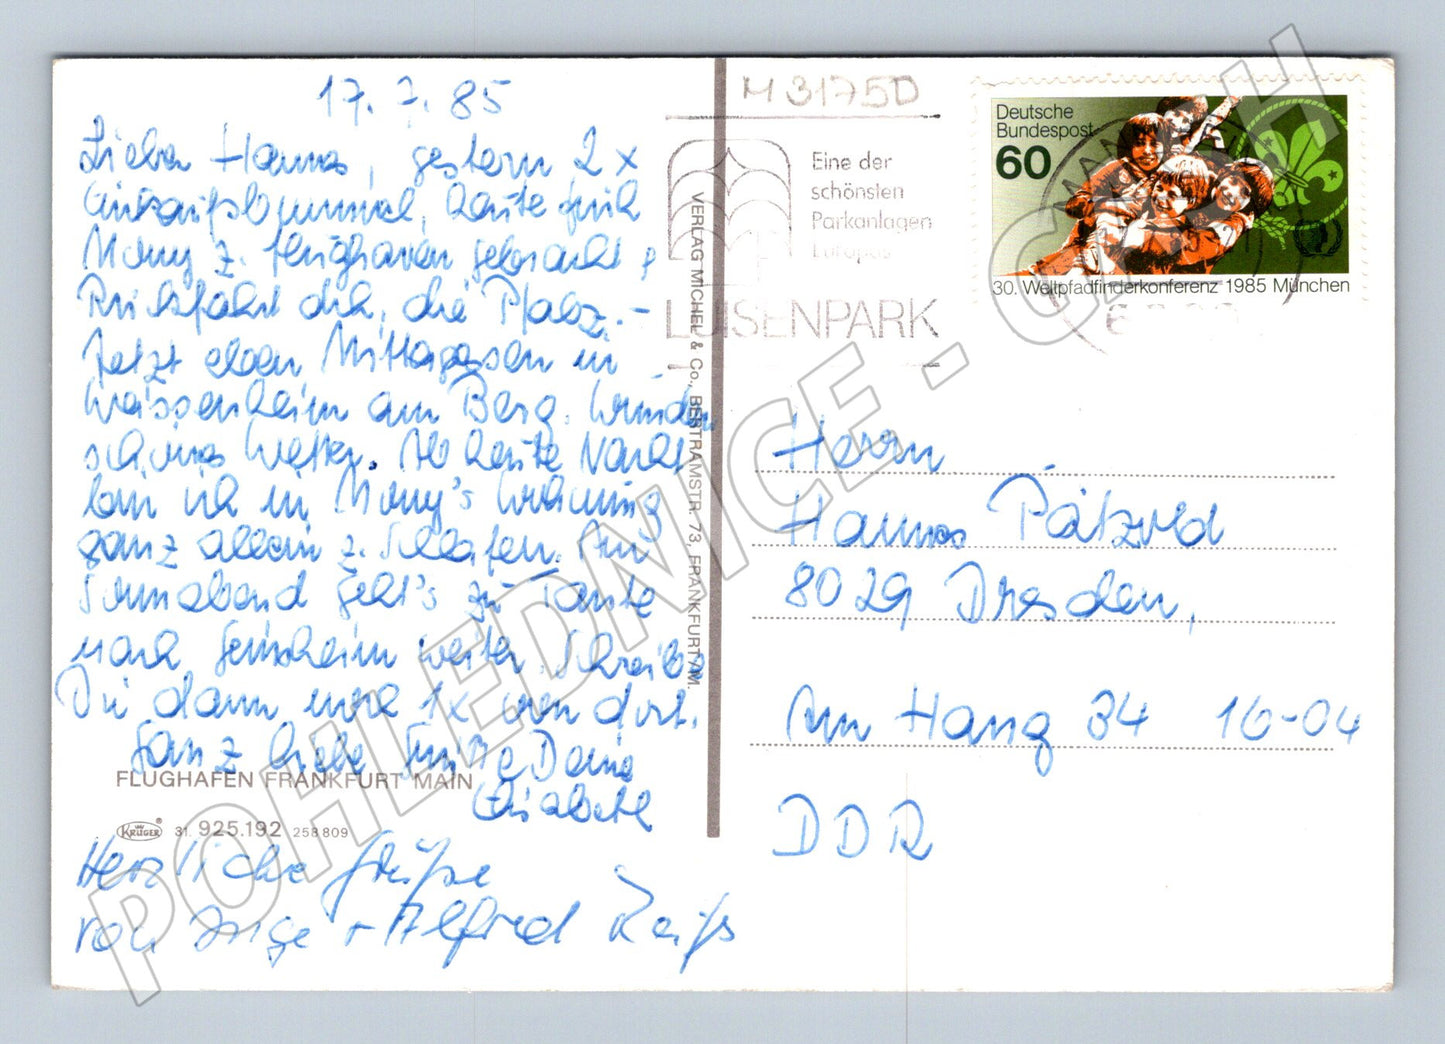 17. 7. 85
Lieber Hannes, gestern 2 x
Einkaufsbummel, heute früh
Mony z. Flughafen gebracht,
Rückfahrt dch. die Pfalz. –
Jetzt eben Mittagessen in
Weissenheim am Berg. Wunder
schönes Wetter. Ab heute Nacht
bin ich in Mony's Wohnung
ganz allein z. Schlafen. Am
Sonnabend geht's zu Tante
nach Geinsheim weiter. Schreibe
Dir dann noch 1x von dort.
Ganz liebe Grüße Deine
Elisabeth
FLUGHAFEN FRANKFURT MAIN
KRÜGER® 31. 925.192 258 809
Herzliche Grüße
von Inge + Alfred
VERLAG MICHEL & Co., BERTRAMSTR. 73, FRANKFURT/M.
M 3175D
Eine der
schönsten
Parkanlagen
Europas
LUISENPARK
Deutsche
Bundespost
60
30. Weltpfadfinderkonferenz 1985 München
Herrn
Hannes Pätzold
8029 Dresden,
Am Hang 34 16-04
DDR
POHLEDNICE - CZ